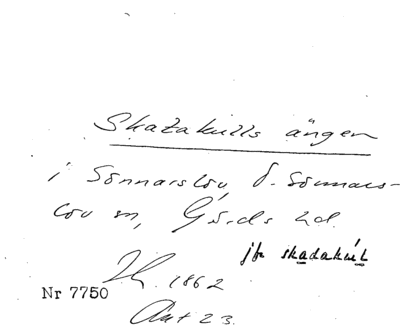 Skatakulls ängen
i Sönnarslöv, Ö. Sönnars-
löv sn, Gärds hd.
jfr skadakúl
1862
Nr 7750
Akt 23.